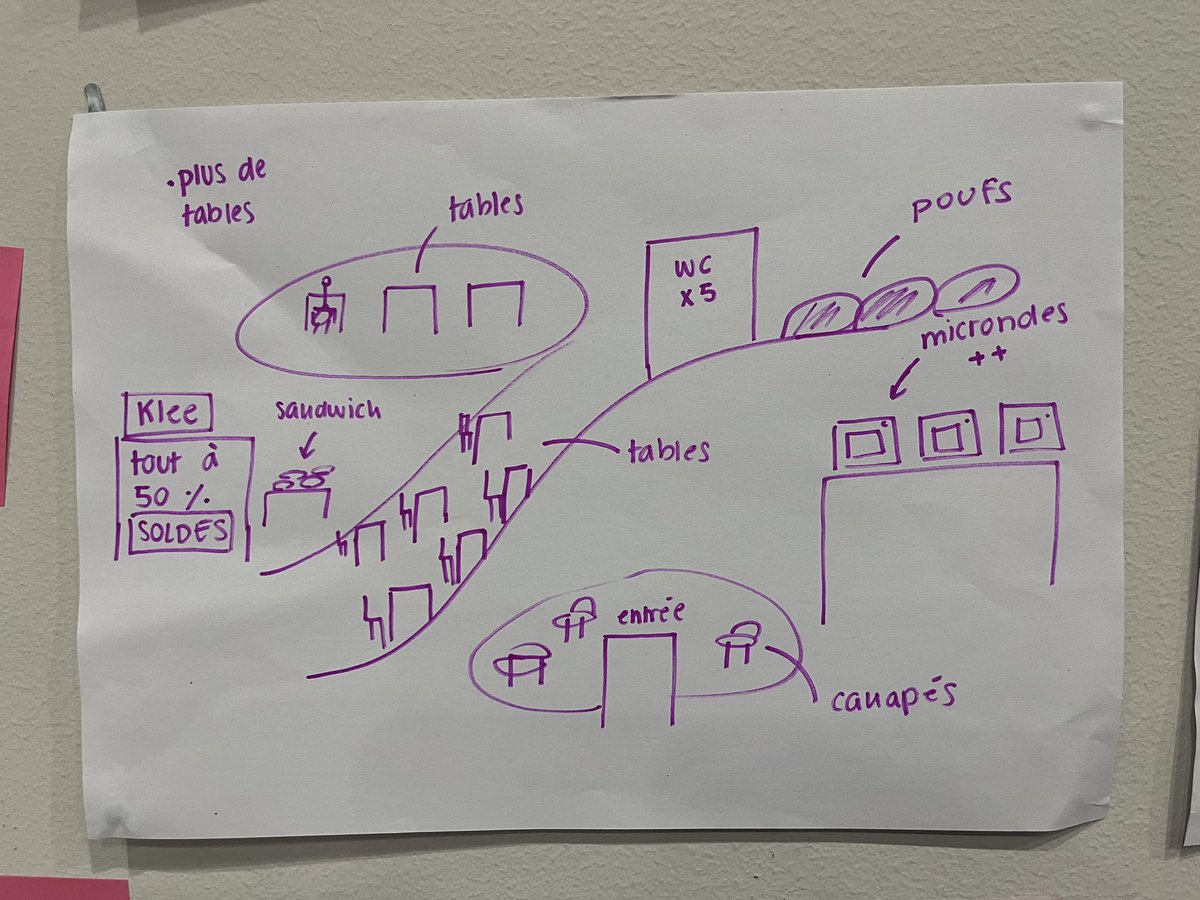 • plus de
tables
tables
WC
x5
poufs
microndes
++
Klee
tout à
50 %
SOLDES
sandwich
tables
entrée
canapés